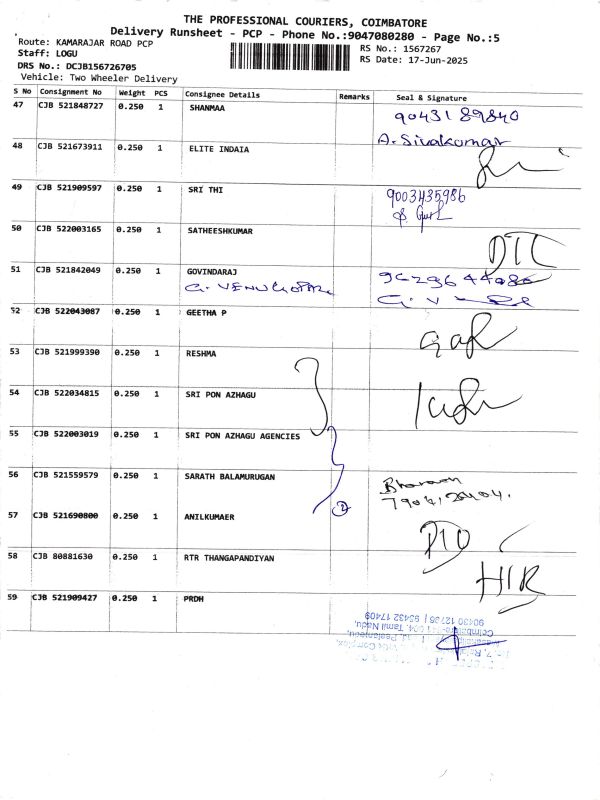 THE PROFESSIONAL COURIERS, COIMBATORE
Delivery Runsheet - PCP - Phone No.:9047080280 - Page No.:5
Route: KAMARAJAR ROAD PCP
RS No.: 1567267
Staff: LOGU
RS Date: 17-Jun-2025
DRS No.: DCJB156726705
Vehicle: Two Wheeler Delivery
S No Consignment No Weight PCS Consignee Details Remarks Seal & Signature
47 CJB 521848727 0.250 1 SHANMAA 9043189840
A. Sivakumar
48 CJB 521673911 0.250 1 ELITE INDAIA
49 CJB 521909597 0.250 1 SRI THI 9003435986
50 CJB 522003165 0.250 1 SATHEESHKUMAR
51 CJB 521842049 0.250 1 GOVINDARAJ
G. VENUGOPAL
52 CJB 522043087 0.250 1 GEETHA P
53 CJB 521999390 0.250 1 RESHMA
54 CJB 522034815 0.250 1 SRI PON AZHAGU
55 CJB 522003019 0.250 1 SRI PON AZHAGU AGENCIES
56 CJB 521559579 0.250 1 SARATH BALAMURUGAN
2
57 CJB 521690800 0.250 1 ANILKUMAER
58 CJB 80881630 0.250 1 RTR THANGAPANDIYAN
59 CJB 521909427 0.250 1 PRDH
90430 12736 | 93432 17409
Tamil Nadu,
Complex,